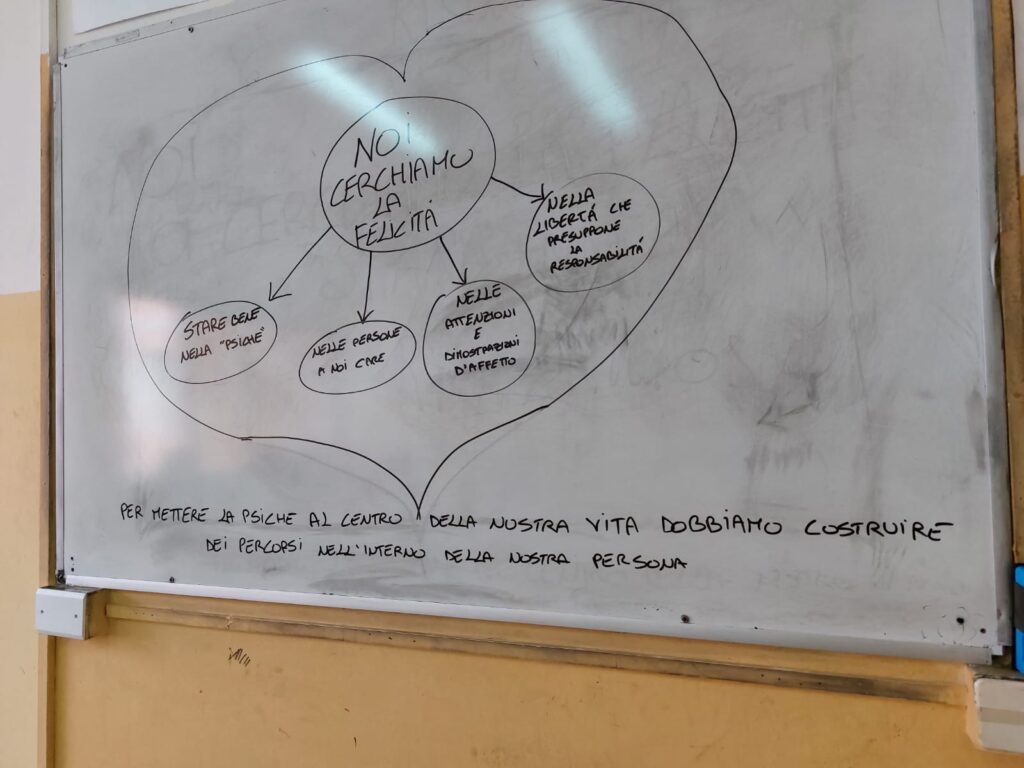 NOI
CERCHIAMO
LA
FELICITÁ
NELLA
LIBERTÁ CHE
PRESUPPONE
LA
RESPONSABILITÁ
STARE BENE
NELLA "PSICHE"
NELLE PERSONE
A NOI CARE
NELLE
ATTENZIONI
E
DIMOSTRAZIONI
D'AFFETTO
PER METTERE LA PSICHE AL CENTRO DELLA NOSTRA VITA DOBBIAMO COSTRUIRE
DEI PERCORSI NELL'INTERNO DELLA NOSTRA PERSONA